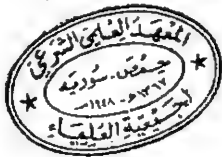 المعهد العلمي الشرعي
حمص - سورية
١٣٦٧هـ - ١٩٤٨م
لجمعية العلماء